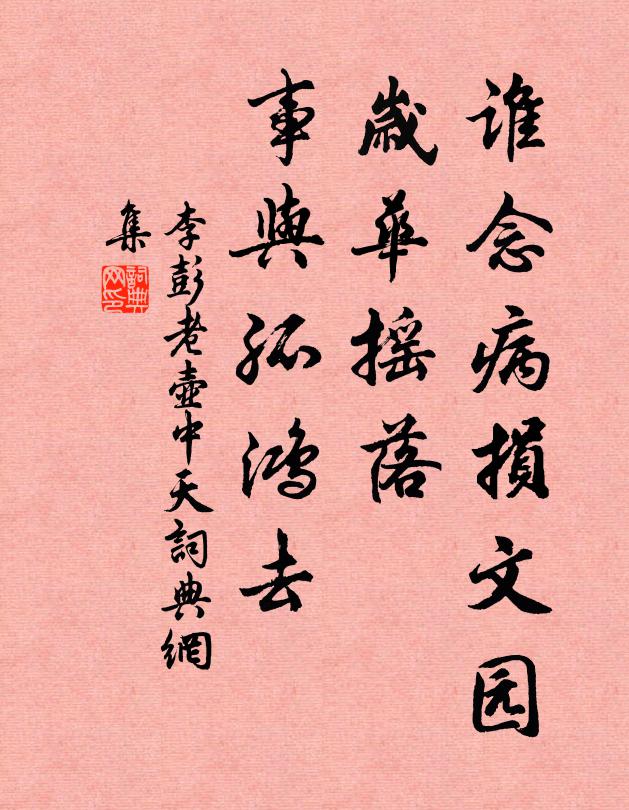 谁念病損文园
歲華摇落
事與孤鴻去
李彭老壺中天詞典網
集
詞典
网印